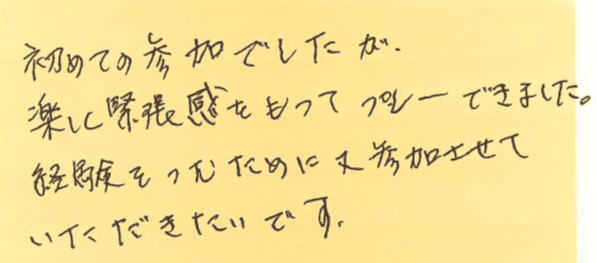 初めての参加でしたが、
楽しく緊張感をもってプレーできました。
経験をつむために又参加させて
いただきたいです。